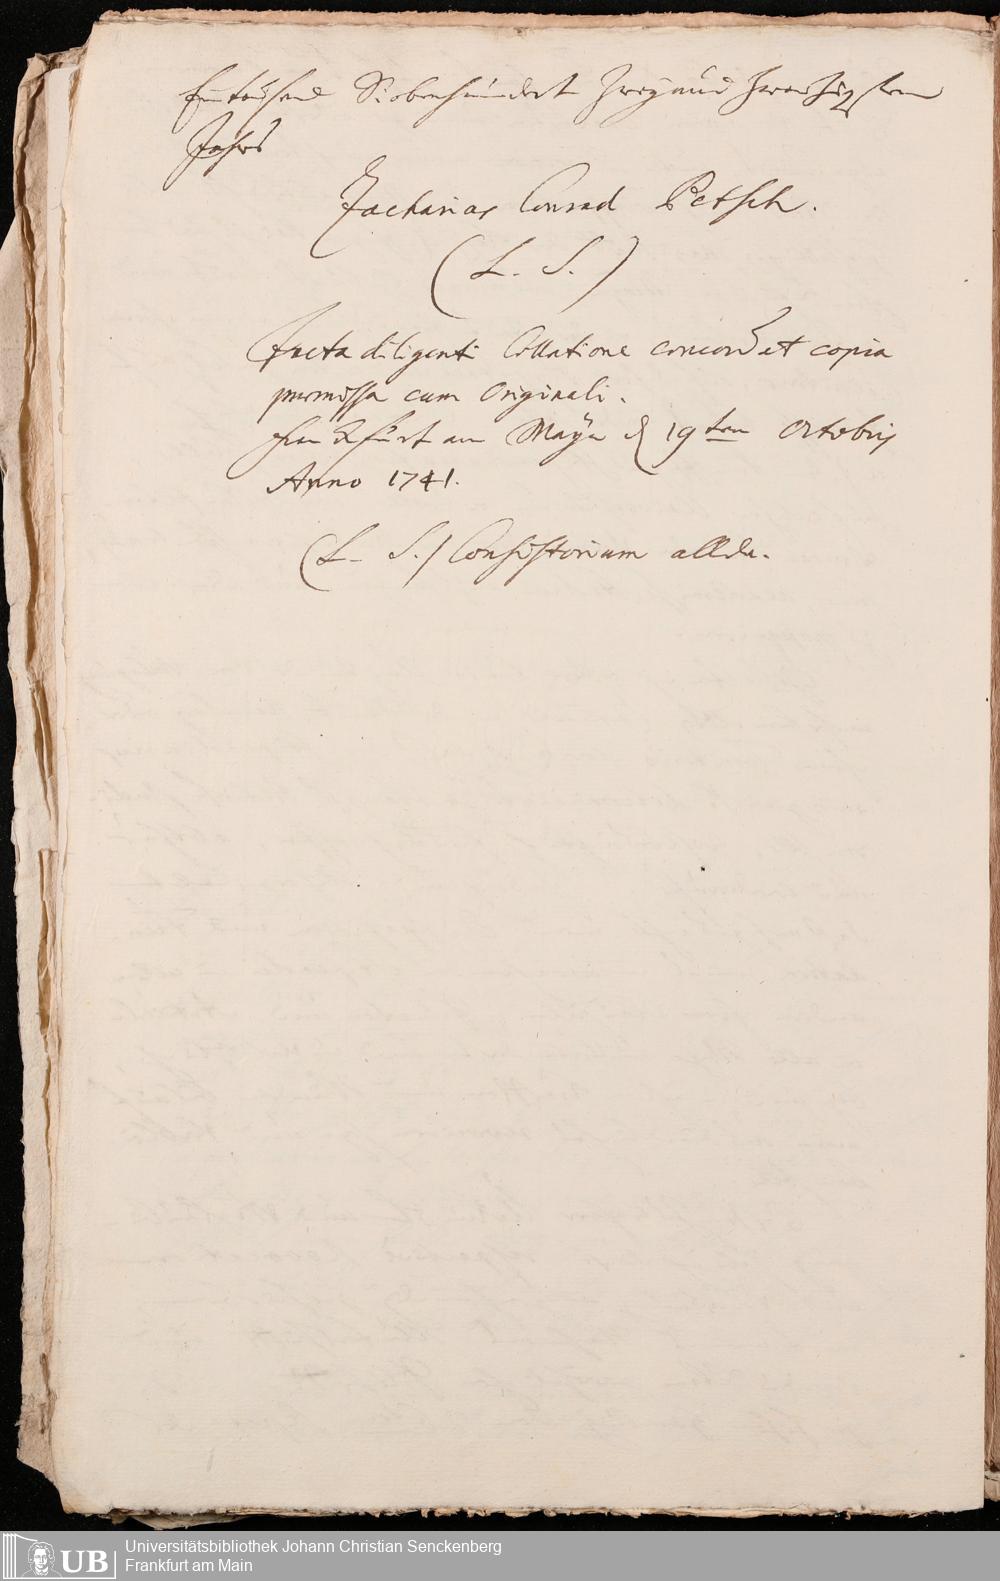 Eintausend Siebenhundert Zwey und Zwantzigsten
Jahrs
Zacharias Conrad Petsch.
(L. S.)
Facta diligenti Collatione concordet copia
præmissa cum Originali.
Franckfurt am Mayn d 19ten Octobris
Anno 1741.
(L. S.) Consistorium allda.
UB
Universitätsbibliothek Johann Christian Senckenberg
Frankfurt am Main